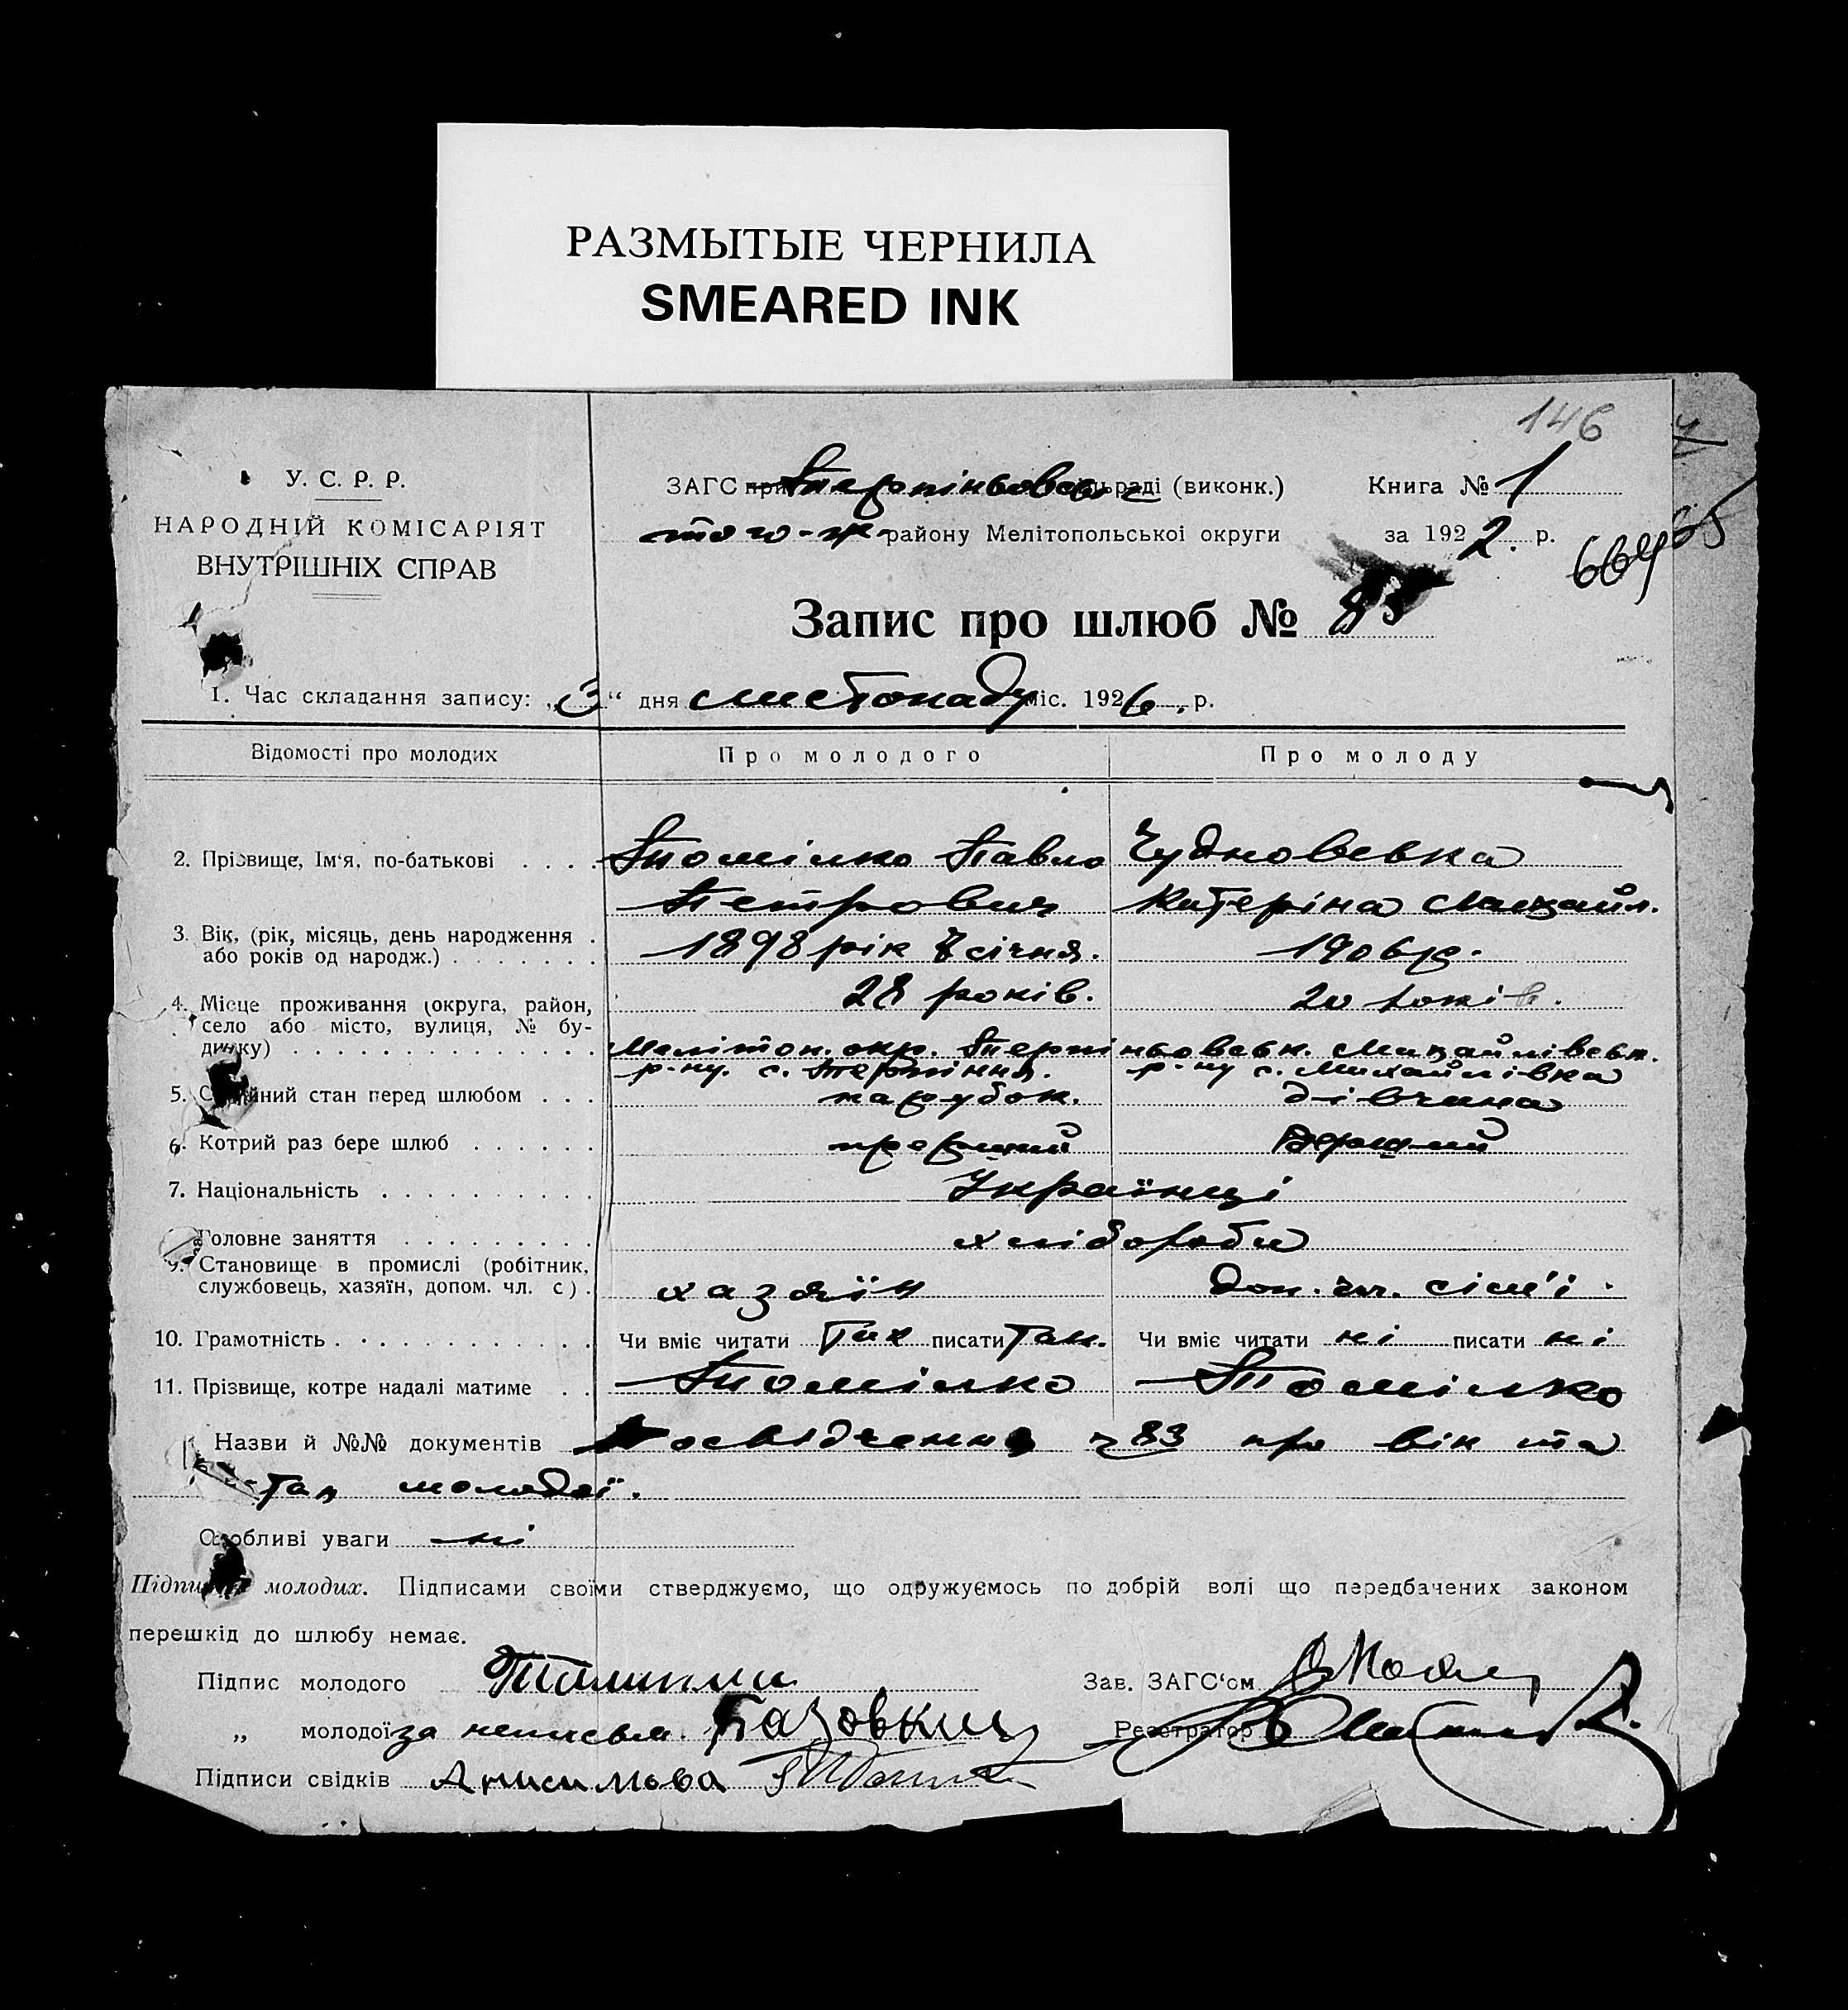 РАЗМЫТЫЕ ЧЕРНИЛА
SMEARED INK
146
У. С. Р. Р.
НАРОДНІЙ КОМІСАРІЯТ
ВНУТРІШНІХ СПРАВ
ЗАГС при раді (виконк.)
того-ж району Мелітопольської округи
Книга № 1
за 1922. р.
Запис про шлюб № 83
1. Час складання запису: „3“ дня листопаду міс. 1926. р.
Відомості про молодих
Про молодого
Про молоду
2. Прізвище, Ім‘я, по-батькові
Томілко Павло
Петрович
Чудновська
Катеріна Михайл.
3. Вік, (рік, місяць, день народження
або років од народж.)
1898 рік 7 січня.
28 років.
1906 р.
20 років.
4. Місце проживання (округа, район,
село або місто, вулиця, № бу-
динку)
Мелітоп. окр. Терпіньовськ. Михайлівськ.
р-ну. с. Терпіння. р-ну с. Михайлівка
5. Сімейний стан перед шлюбом
парубок.
дівчина
6. Котрий раз бере шлюб
перший
перший
7. Національність
Українці
Головне заняття
хлібороби
9. Становище в промислі (робітник,
службовець, хазяїн, допом. чл. с)
хазяїн
доп. чл. сім'ї.
10. Грамотність
Чи вміє читати так писати так.
Чи вміє читати ні писати ні
11. Прізвище, котре надалі матиме
Томілко
Томілко
Назви й №№ документів Посвідчення ч 83 про вік та
стан молодої.
Особливі уваги ні
Підписи молодих. Підписами своїми стверджуємо, що одружуємось по добрій волі що передбачених законом
перешкід до шлюбу немає.
Підпис молодого
Зав. ЗАГС‘ом
„ молодої за неписьм.
Реєстратор
Підписи свідків Анисимова